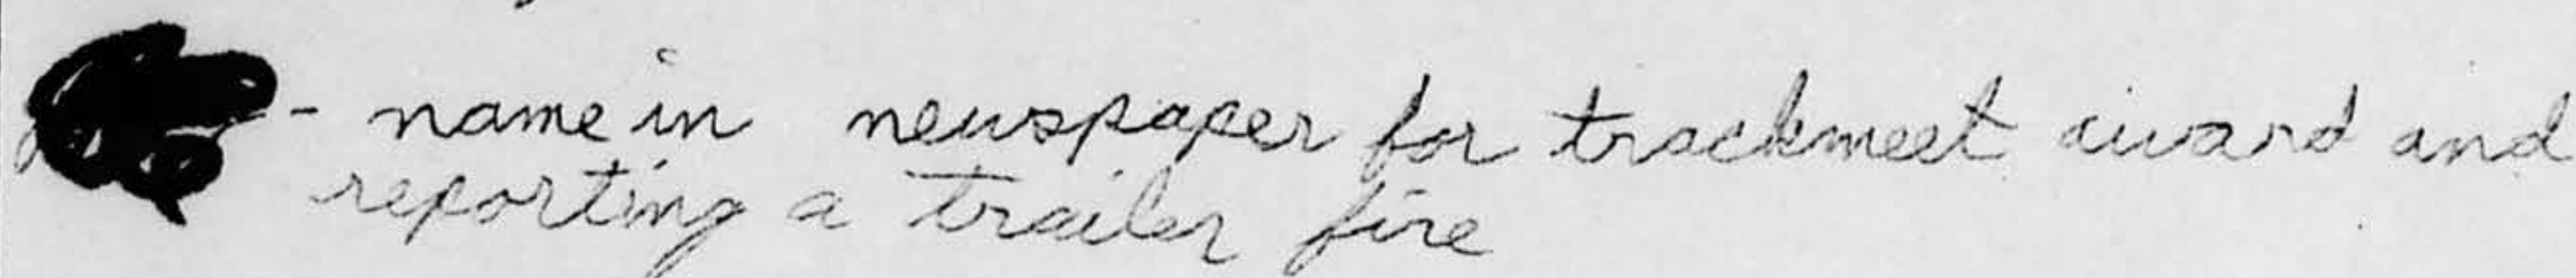 - name in newspaper for trackmeet award and
reporting a trailer fire